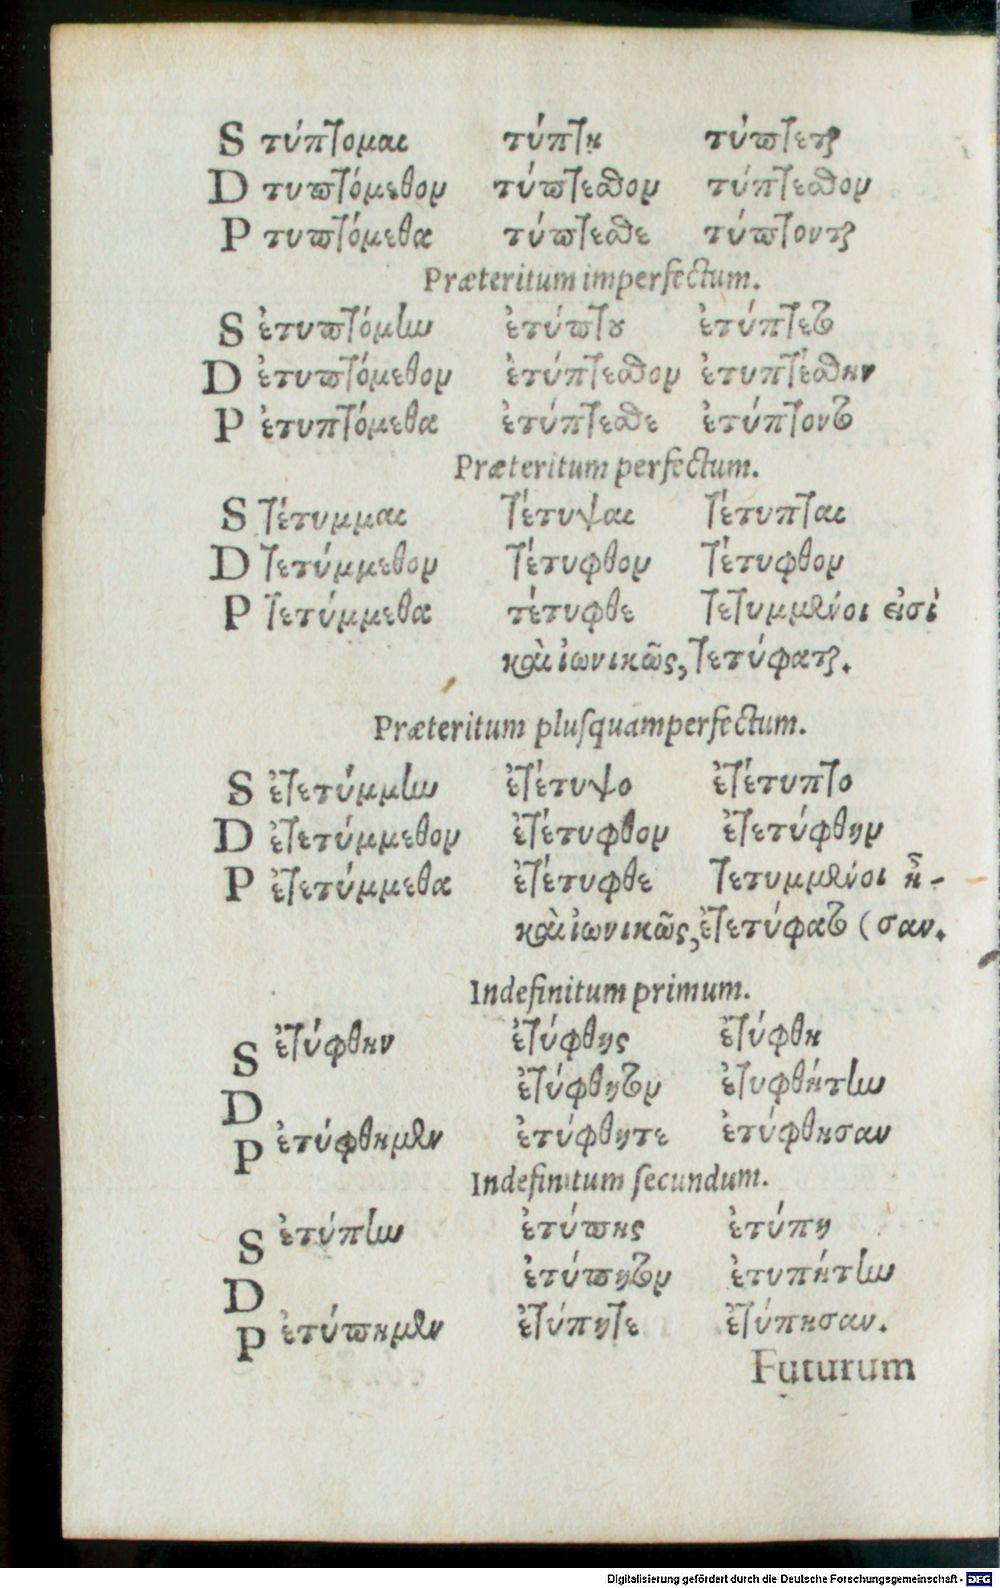 S τύπτομαι τύπτη τύπτεται
D τυπτόμεθον τύπτεσθον τύπτεσθον
P τυπτόμεθα τύπτεσθε τύπτονται
Præteritum imperfectum.
S ἐτυπτόμην ἐτύπτου ἐτύπτετο
D ἐτυπτόμεθον ἐτύπτεσθον ἐτυπτέσθην
P ἐτυπτόμεθα ἐτύπτεσθε ἐτύπτοντο
Præteritum perfectum.
S τέτυμμαι τέτυψαι τέτυπται
D τετύμμεθον τέτυφθον τέτυφθον
P τετύμμεθα τέτυφθε τετυμμένοι εἰσὶ
καὶ ἰωνικῶς, τετύφαται.
Præteritum pluſquamperfectum.
S ἐτετύμμην ἐτέτυψο ἐτέτυπτο
D ἐτετύμμεθον ἐτέτυφθον ἐτετύφθην
P ἐτετύμμεθα ἐτέτυφθε τετυμμένοι ἦ-
καὶ ἰωνικῶς, ἐτετύφατο (σαν.
Indefinitum primum.
S ἐτύφθην ἐτύφθης ἐτύφθη
D ἐτύφθητον ἐτυφθήτην
P ἐτύφθημεν ἐτύφθητε ἐτύφθησαν
Indefinitum ſecundum.
S ἐτύπην ἐτύπης ἐτύπη
D ἐτύπητον ἐτυπήτην
P ἐτύπημεν ἐτύπητε ἐτύπησαν.
Futurum
Digitalisierung gefördert durch die Deutsche Forschungsgemeinschaft - DFG